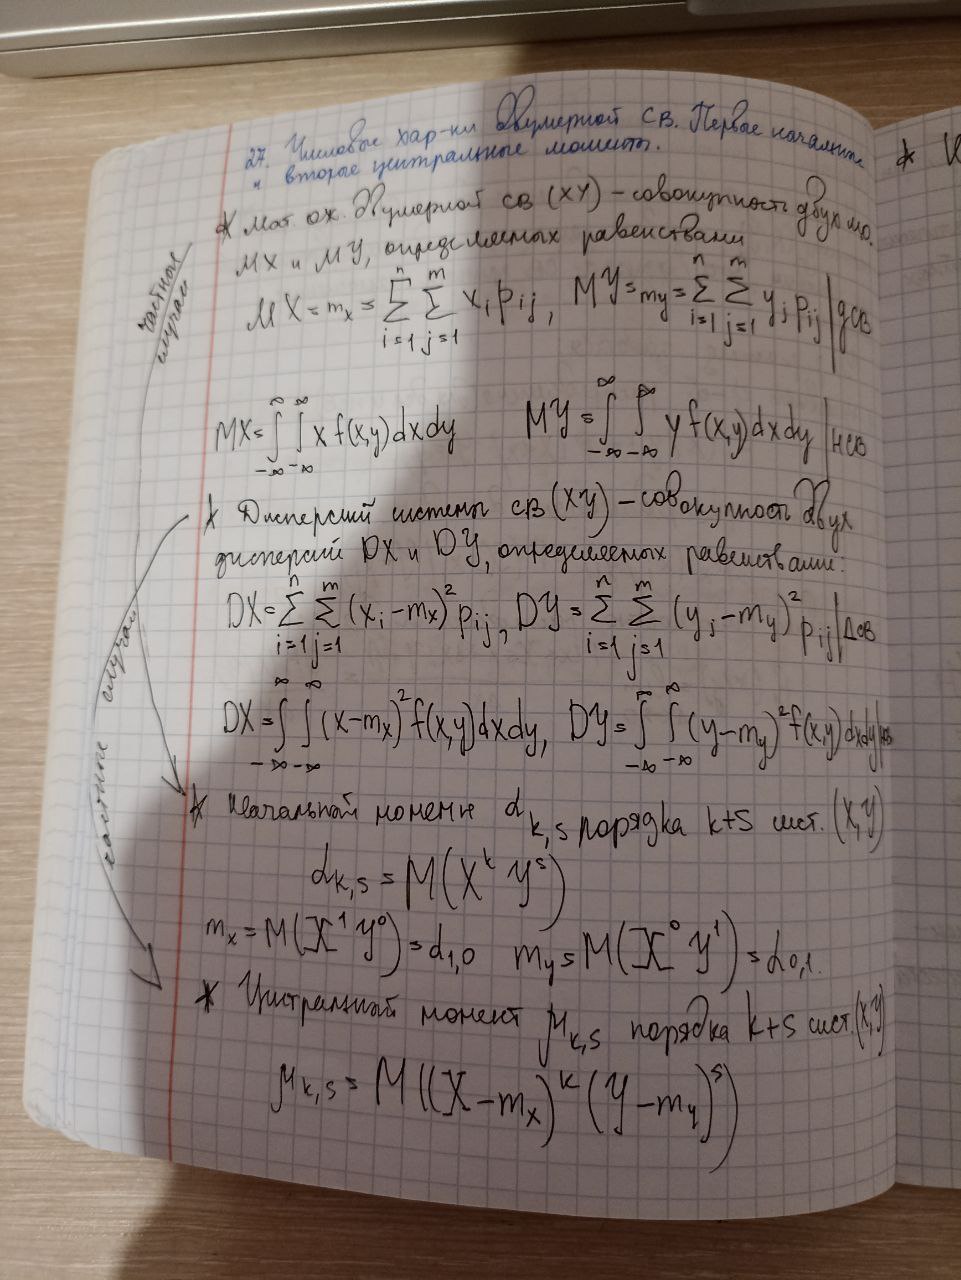 27. Числовые хар-ки двумерной СВ. Первые начальные
и вторые центральные моменты.
* Мат. ож. двумерной св (XY) – совокупность двух мо.
MX и MY, определяемых равенствами
MX = m_x = ∑_{i=1}^{n} ∑_{j=1}^{m} x_i p_{ij}, MY = m_y = ∑_{i=1}^{n} ∑_{j=1}^{m} y_j p_{ij} | дсв
частные
случаи
MX = ∫_{-∞}^{∞} ∫_{-∞}^{∞} x f(x,y) dx dy MY = ∫_{-∞}^{∞} ∫_{-∞}^{∞} y f(x,y) dx dy | нсв
* Дисперсий системы св (XY) – совокупность двух
дисперсий DX и DY, определяемых равенствами:
DX = ∑_{i=1}^{n} ∑_{j=1}^{m} (x_i - m_x)^2 p_{ij}, DY = ∑_{i=1}^{n} ∑_{j=1}^{m} (y_j - m_y)^2 p_{ij} | дсв
DX = ∫_{-∞}^{∞} ∫_{-∞}^{∞} (x - m_x)^2 f(x,y) dx dy, DY = ∫_{-∞}^{∞} ∫_{-∞}^{∞} (y - m_y)^2 f(x,y) dx dy | нв
частные случаи
* Начальный момент α_{k,s} порядка k+s сист. (X,Y)
α_{k,s} = M(X^k Y^s)
m_x = M(X^1 Y^0) = α_{1,0} m_y = M(X^0 Y^1) = α_{0,1}.
* Центральный момент μ_{k,s} порядка k+s сист. (x,y)
μ_{k,s} = M((X - m_x)^k (Y - m_y)^s)